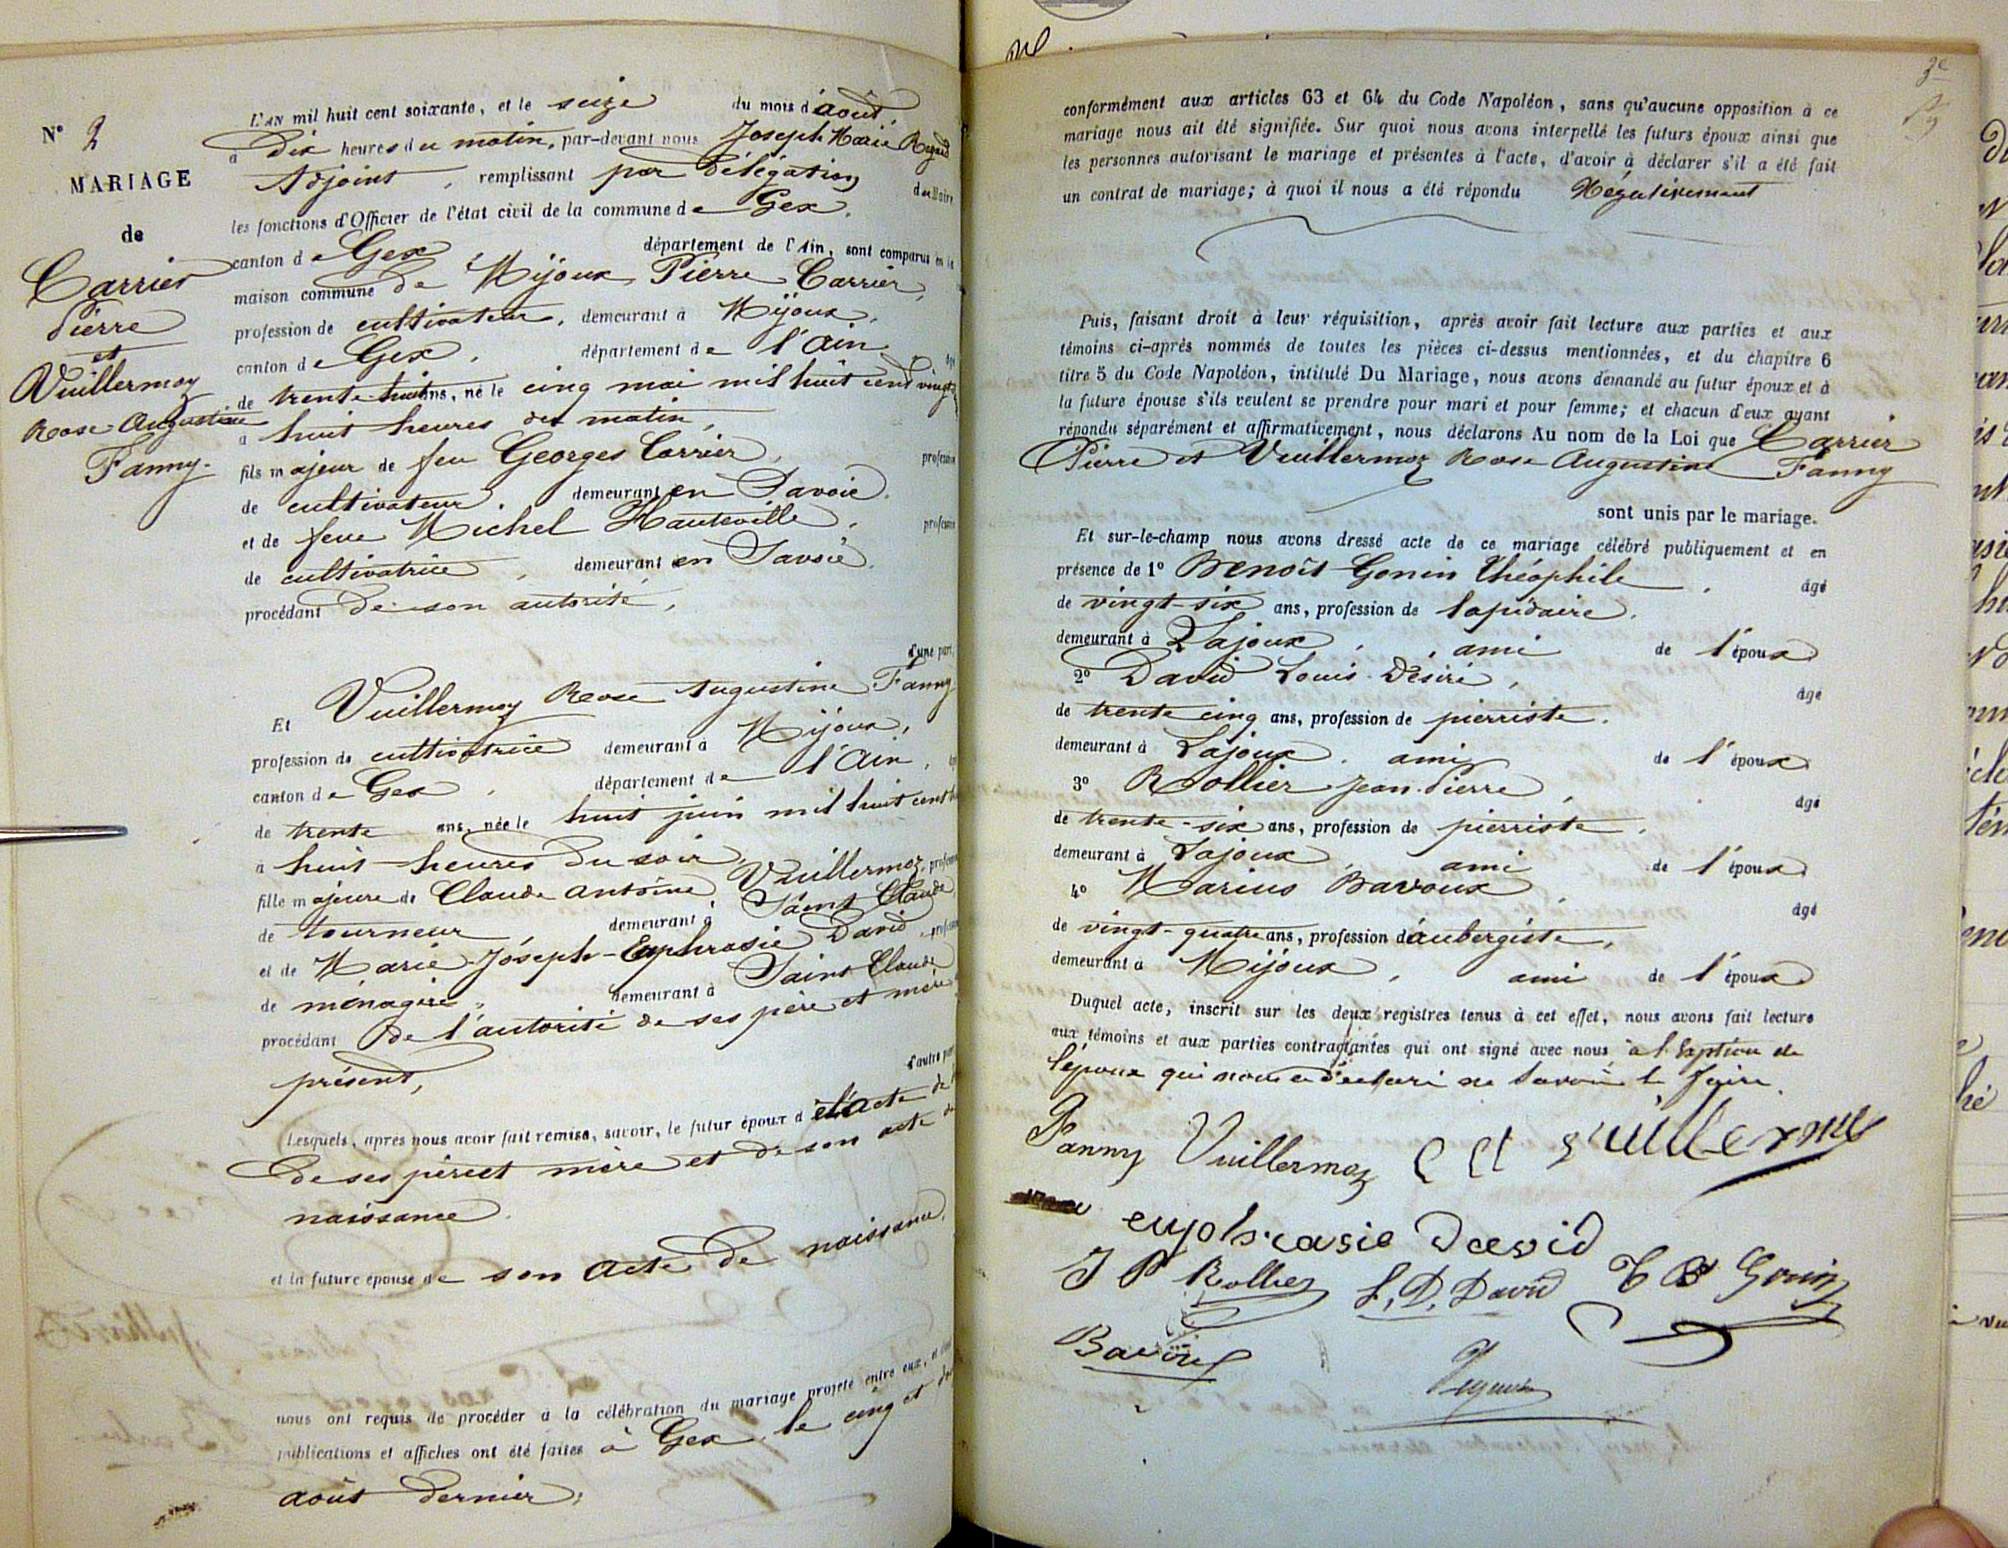 N° 2
MARIAGE
de
Carrier
Pierre
et
Vuillermoz
Rose Augustine
Fanny.
L'AN mil huit cent soixante, et le seize du mois d'août,
à Dix heures du matin, par-devant nous Joseph Marie
Adjoint, remplissant par Délégation du Maire
les fonctions d'Officier de l'état civil de la commune de Gex,
canton de Gex, département de l'Ain, sont comparus en la
maison commune de Mijoux, Pierre Carrier,
profession de cultivateur, demeurant à Mijoux,
canton de Gex, département de l'Ain, âgé
de trente-huit ans, né le cinq mai mil huit cent vingt
à huit heures du matin,
fils majeur de feu Georges Carrier, profession
de cultivateur, demeurant en Savoie,
et de feue Michel Hauteville, profession
de cultivatrice, demeurant en Savoie,
procédant de son autorité,
d'une part,
Et Vuillermoz Rose Augustine Fanny
profession de cultivatrice demeurant à Mijoux,
canton de Gex, département de l'Ain,
de trente ans, née le huit juin mil huit cent
à huit heures du soir,
fille majeure de Claude Antoine Vuillermoz, profession
de tourneur, demeurant à Saint Claude,
et de Marie-Joséph-Euphrasie David, profession
de ménagère, demeurant à Saint Claude
procédant de l'autorité de ses père et mère
présents,
d'autre part
Lesquels, après nous avoir fait remise, savoir, le futur époux de l'acte de
de ses père et mère et de son acte de
naissance
et la future épouse de son acte de naissance,
nous ont requis de procéder à la célébration du mariage projeté entre eux, et
publications et affiches ont été faites à Gex, le cinq et
août dernier,
3e
conformément aux articles 63 et 64 du Code Napoléon, sans qu'aucune opposition à ce
mariage nous ait été signifiée. Sur quoi nous avons interpellé les futurs époux ainsi que
les personnes autorisant le mariage et présentes à l'acte, d'avoir à déclarer s'il a été fait
un contrat de mariage; à quoi il nous a été répondu Négativement
Puis, faisant droit à leur réquisition, après avoir fait lecture aux parties et aux
témoins ci-après nommés de toutes les pièces ci-dessus mentionnées, et du chapitre 6
titre 5 du Code Napoléon, intitulé Du Mariage, nous avons demandé au futur époux et à
la future épouse s'ils veulent se prendre pour mari et pour femme; et chacun d'eux ayant
répondu séparément et affirmativement, nous déclarons Au nom de la Loi que Carrier
Pierre et Vuillermoz Rose Augustine Fanny
sont unis par le mariage.
Et sur-le-champ nous avons dressé acte de ce mariage célébré publiquement et en
présence de 1° Benoît-Gonin Théophile, âgé
de vingt-six ans, profession de lapidaire,
demeurant à Lajoux, ami de l'époux
2° David Louis Désiré, âgé
de trente cinq ans, profession de pierriste.
demeurant à Lajoux, ami de l'époux
3° Rollier Jean-Pierre, âgé
de trente-six ans, profession de pierriste,
demeurant à Lajoux, ami de l'époux
4° Marius Bavoux, âgé
de vingt-quatre ans, profession d'aubergiste,
demeurant à Mijoux, ami de l'époux
Duquel acte, inscrit sur les deux registres tenus à cet effet, nous avons fait lecture
aux témoins et aux parties contractantes qui ont signé avec nous à l'Exption de
l'époux qui nous a déclaré ne savoir le faire.
Fanny Vuillermoz
euphrasie David
J P Rollier L, D, David T B Gonin
Bavoux